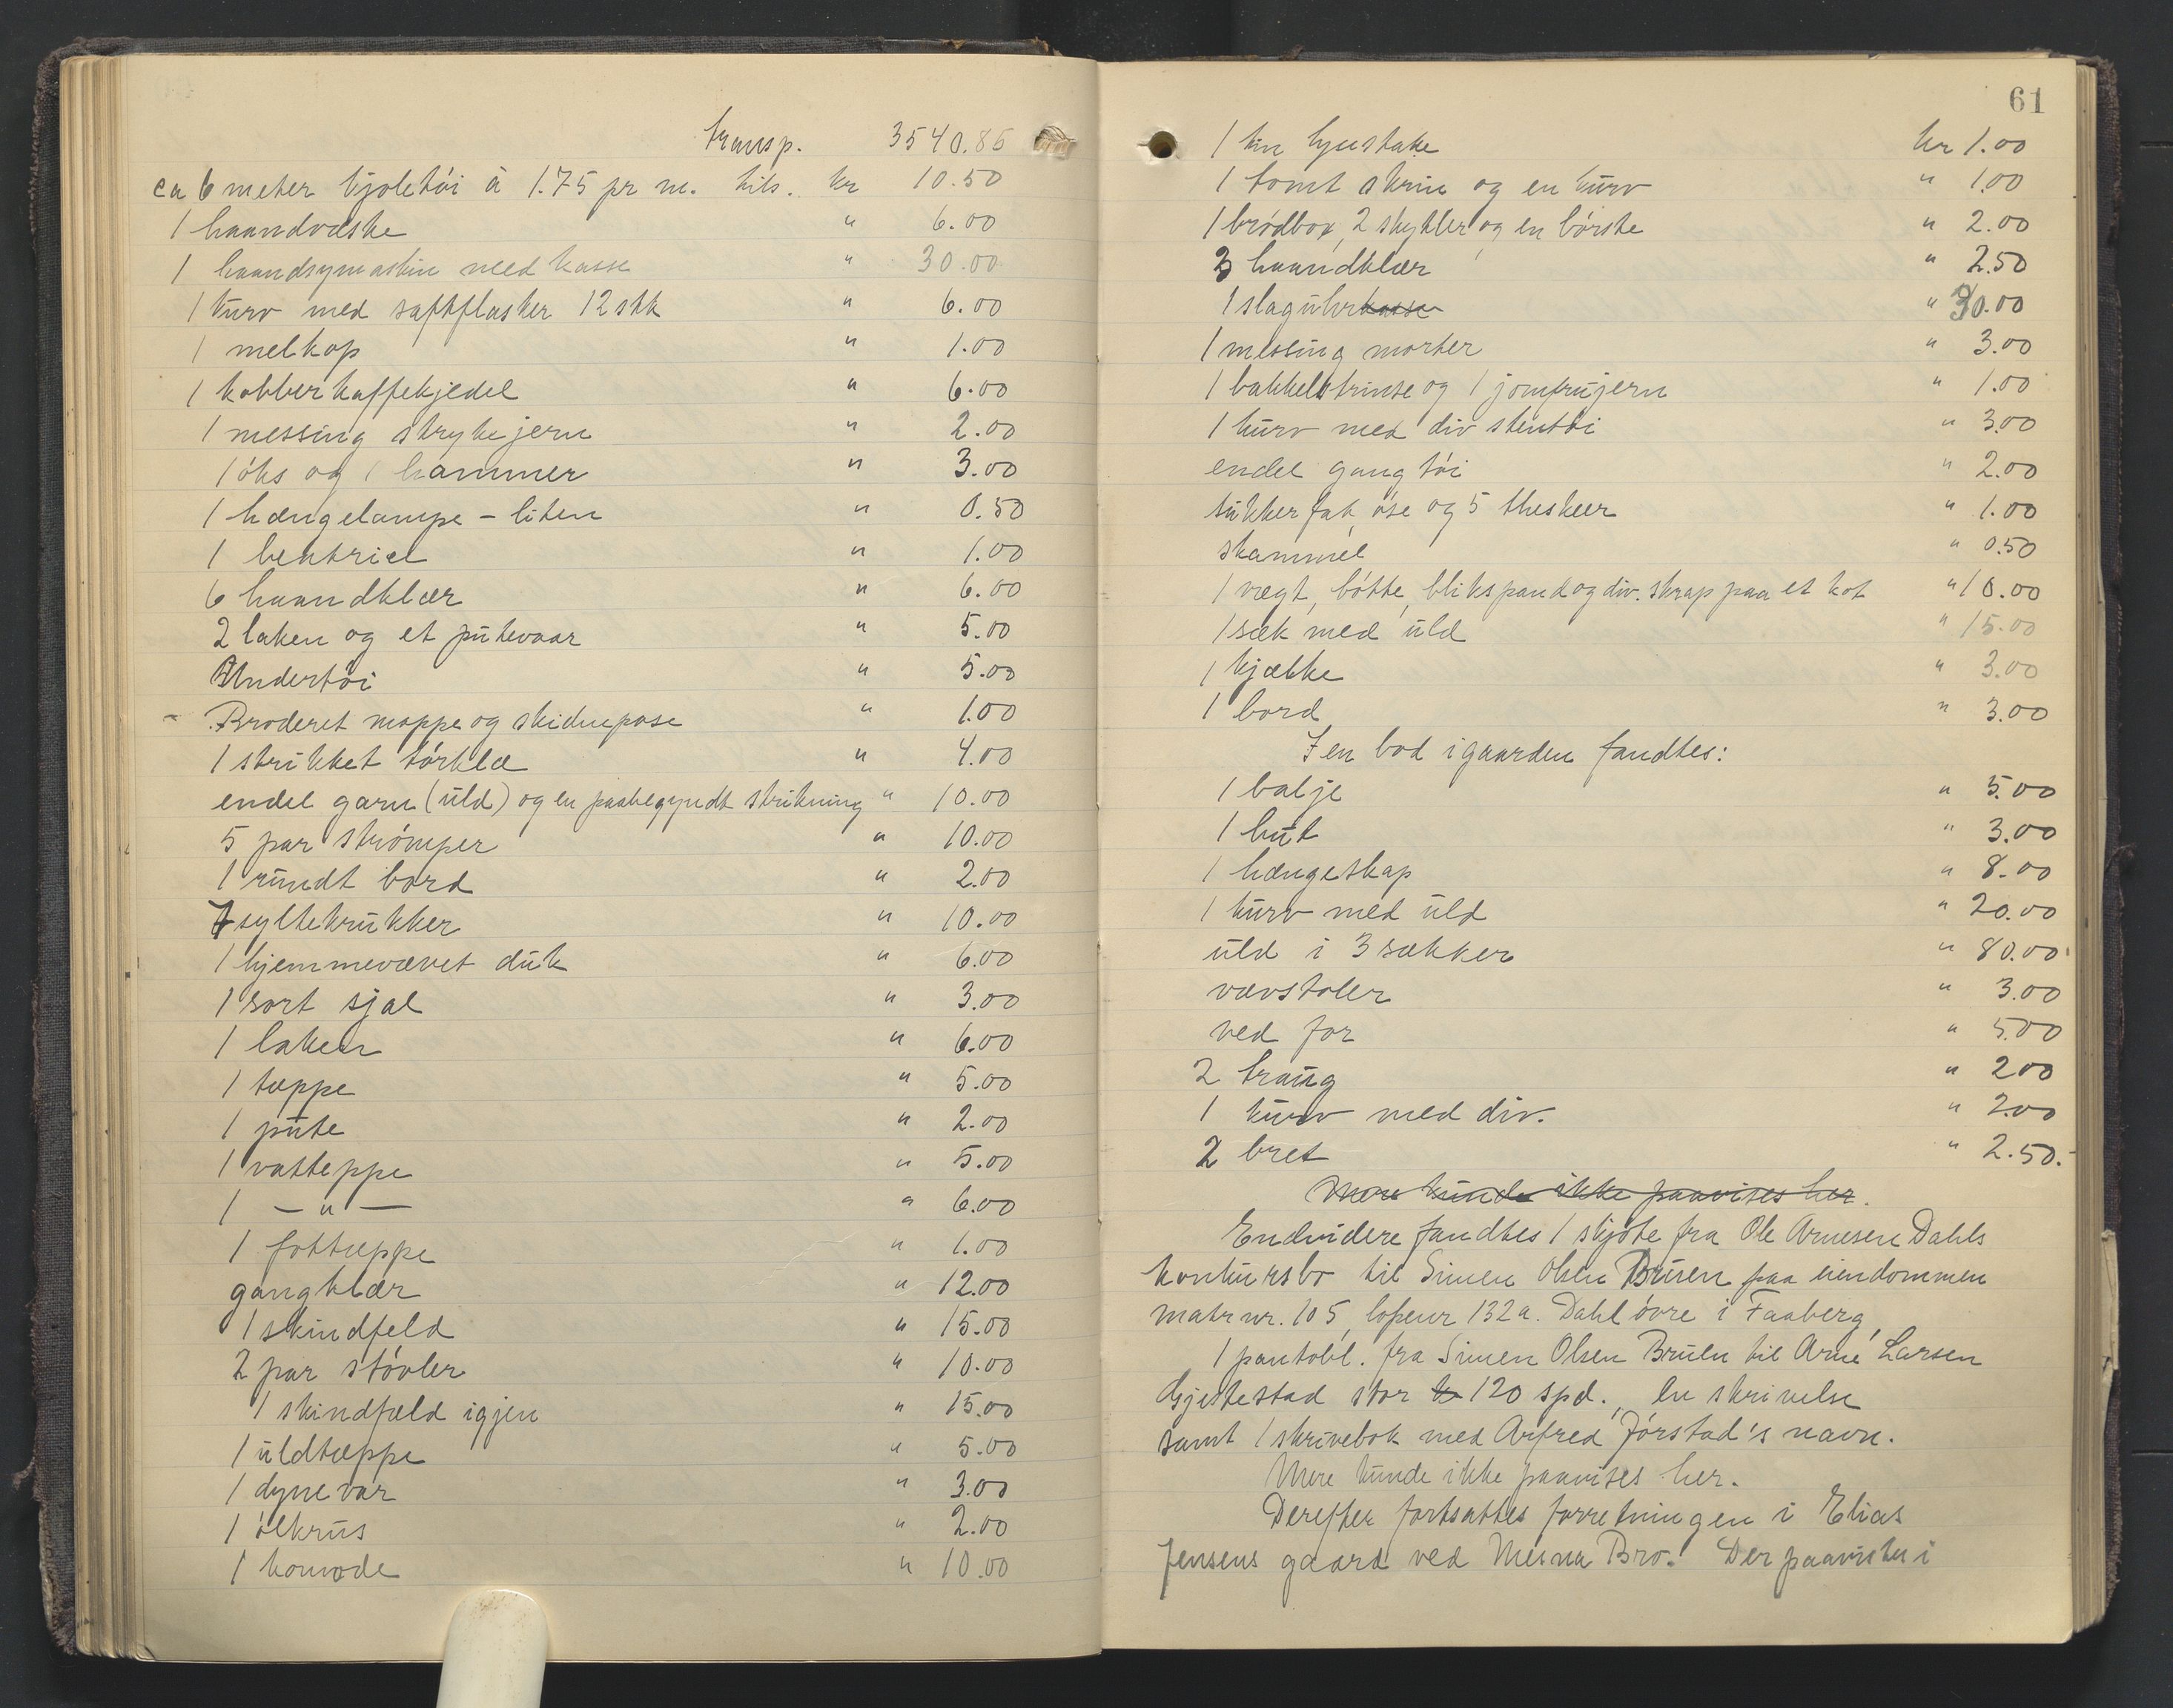 transp. 3540.85
ca 6 meter kjoletöi à 1.75 pr m. tils. kr 10.50
1 haandvæske " 6.00
1 haandsymaskin med kasse " 30.00
1 kurv med saftflasker 12 stk " 6.00
1 melkop " 1.00
1 kobberkaffekjedel " 6.00
1 messing strykejern " 2.00
1 öks og 1 hammer " 3.00
1 hængelampe - liten " 0.50
1 " 1.00
6 haandklær " 6.00
2 laken og et putevaar " 5.00
Undertöi " 5.00
Broderet mappe og skidnepose " 1.00
1 strikket törklæ " 4.00
endel garn (uld) og en paabegyndt strikning " 10.00
5 par strömper " 10.00
1 rundt bord " 2.00
7 syltekrukker " 10.00
1 hjemmevævet duk " 6.00
1 sort sjal " 3.00
1 laken " 6.00
1 tæppe " 5.00
1 pute " 2.00
1 vatteppe " 5.00
1 — " — " 6.00
1 fottæppe " 1.00
gangklær " 12.00
1 skindfeld " 15.00
2 par stövler " 10.00
1 skindfæld igjen " 15.00
1 uldtæppe " 5.00
1 dynevar " 3.00
1 ölkrus " 2.00
1 komode " 10.00
61
1 tin lysestake kr 1.00
1 tomt skrin og en kurv " 1.00
1 brödbox, 2 skykler og en börste " 2.00
3 haandklær " 2.50
1 slaguhr kasse " 30.00
1 messing morter " 3.00
1 bakkelstrinse og 1 jomfrujern " 1.00
1 kurv med div stentöi " 3.00
endel gangtöi " 2.00
sukkerfat, öse og 5 theskeer " 1.00
skammel " 0.50
1 vægt, bötte, blikspand og div. skrap paa et kot " 10.00
1 sæk med uld " 15.00
1 kjælke " 3.00
1 bord " 3.00
I en bod i gaarden fandtes:
1 balje " 5.00
1 hut " 3.00
1 hængeskap " 8.00
1 kurv med uld " 20.00
uld i 3 sækker " 80.00
vævstoler " 3.00
ved for " 5.00
2 traug " 2.00
1 kurv med div. " 2.00
2 bret " 2.50.-
Mere kunde ikke paavises her.
Endvidere fandtes 1 skjöte fra Ole Arnesen Dahls
konkursbo til Simen Olsen Bruen paa eiendommen
matr nr. 105, löpenr 132a. Dahl övre i Faaberg,
1 pantobl. fra Simen Olsen Bruen til Arne Larsen
Gjestestad stor kr 120 spd., en skrivelse
samt 1 skrivebok med Arfred Jörstad's navn.
Mere kunde ikke paavises her.
Derefter fortsattes forretningen i Elias
Jensens gaard ved Mesna Bro. Der paavistes i